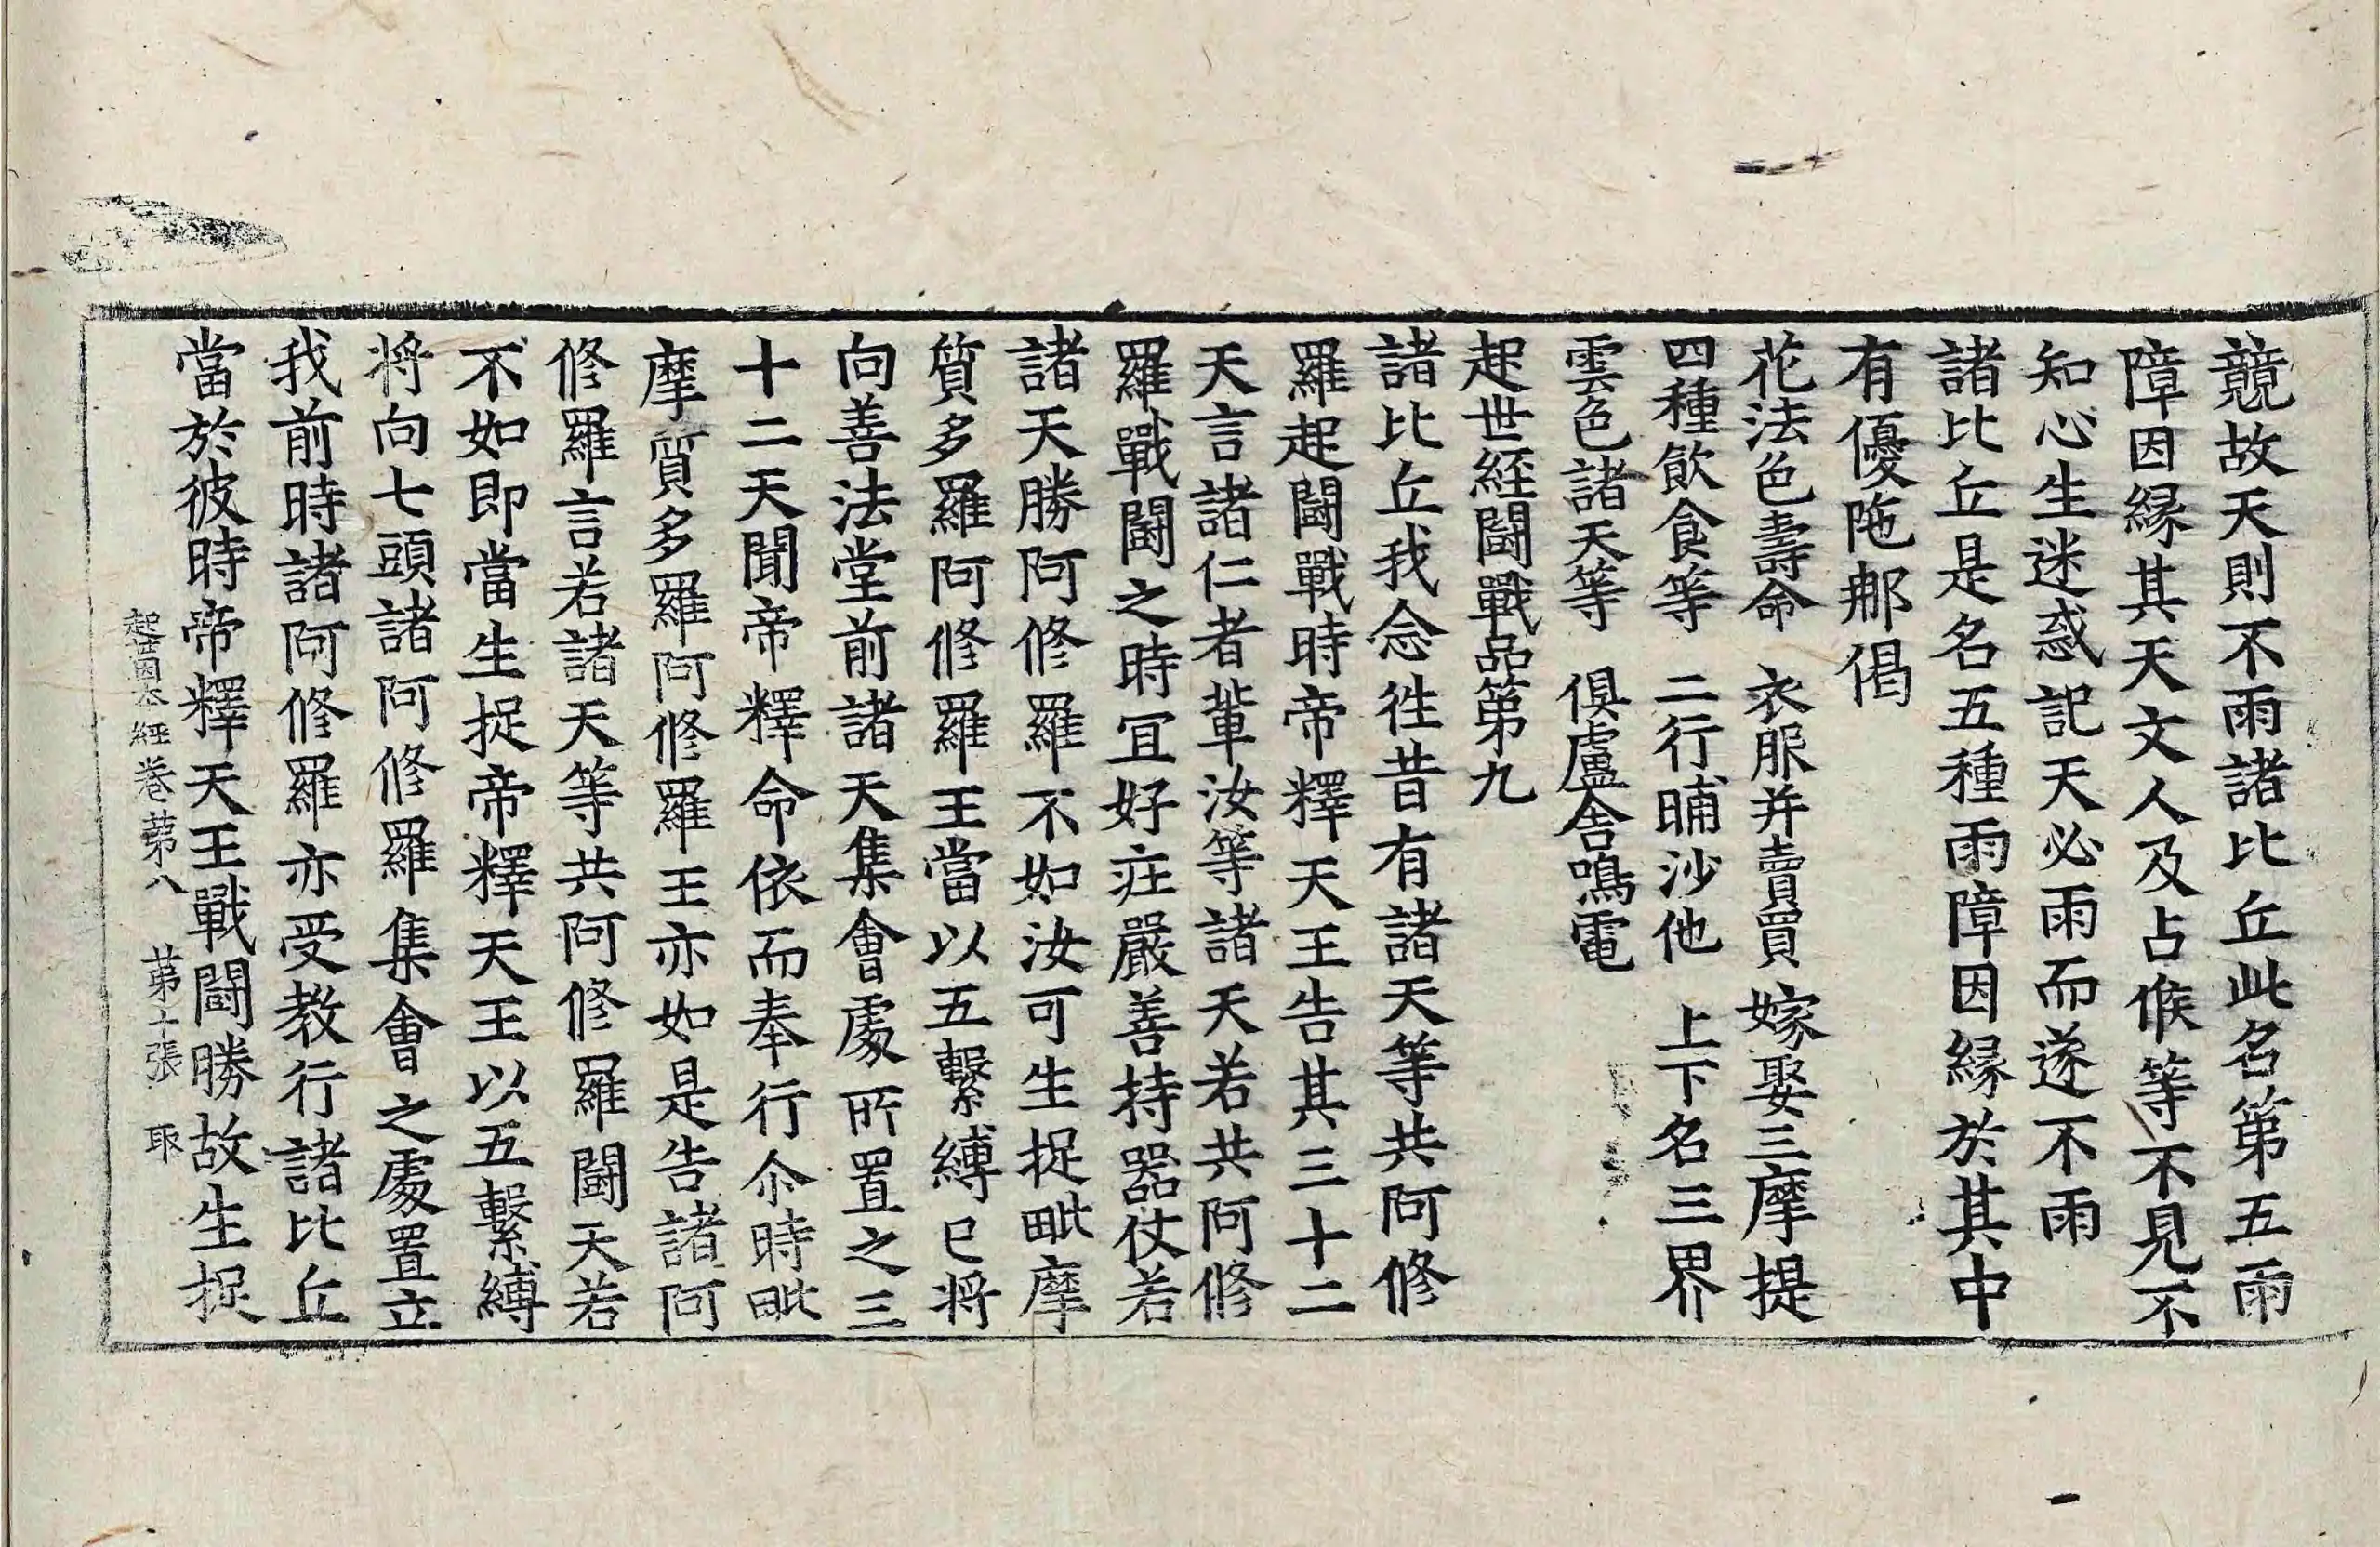 競故天則不雨諸比丘此名第五雨
障因縁其天文人及占候等不見不
知心生迷惑記天必雨而遂不雨
諸比丘是名五種雨障因縁於其中
有優陁那偈
花法色壽命　衣服并賣買　嫁娶三摩提
四種飲食等　二行晡沙他　上下名三界
雲色諸天等　俱盧舍鳴電
起世經鬪戰品第九
諸比丘我念徃昔有諸天等共阿修
羅起鬪戰時帝釋天王告其三十二
天言諸仁者軰汝等諸天若共阿修
羅戰鬪之時冝好庄嚴善持器仗若
諸天勝阿修羅不如汝可生捉毗摩
質多羅阿修羅王當以五繫縛已将
向善法堂前諸天集會處所置之三
十二天聞帝釋命依而奉行尒時毗
摩質多羅阿修羅王亦如是告諸阿
修羅言若諸天等共阿修羅鬪天若
不如即當生捉帝釋天王以五繫縛
将向七頭諸阿修羅集會之處置立
我前時諸阿修羅亦受教行諸比丘
當於彼時帝釋天王戰鬪勝故生捉
起世因本經卷第八　第十張　取